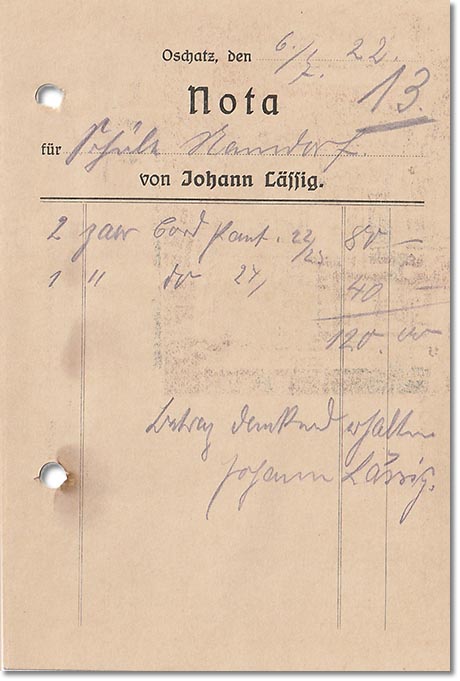 Oschatz, den 6./7. 22.
Nota 13.
für Schule Naundorf.
von Johann Lässig.
2 Paar Cord Pant. 22/23 80 —
1 " do 27, 40 —
120. 00
Betrag dankend erhalten
Johann Lässig.